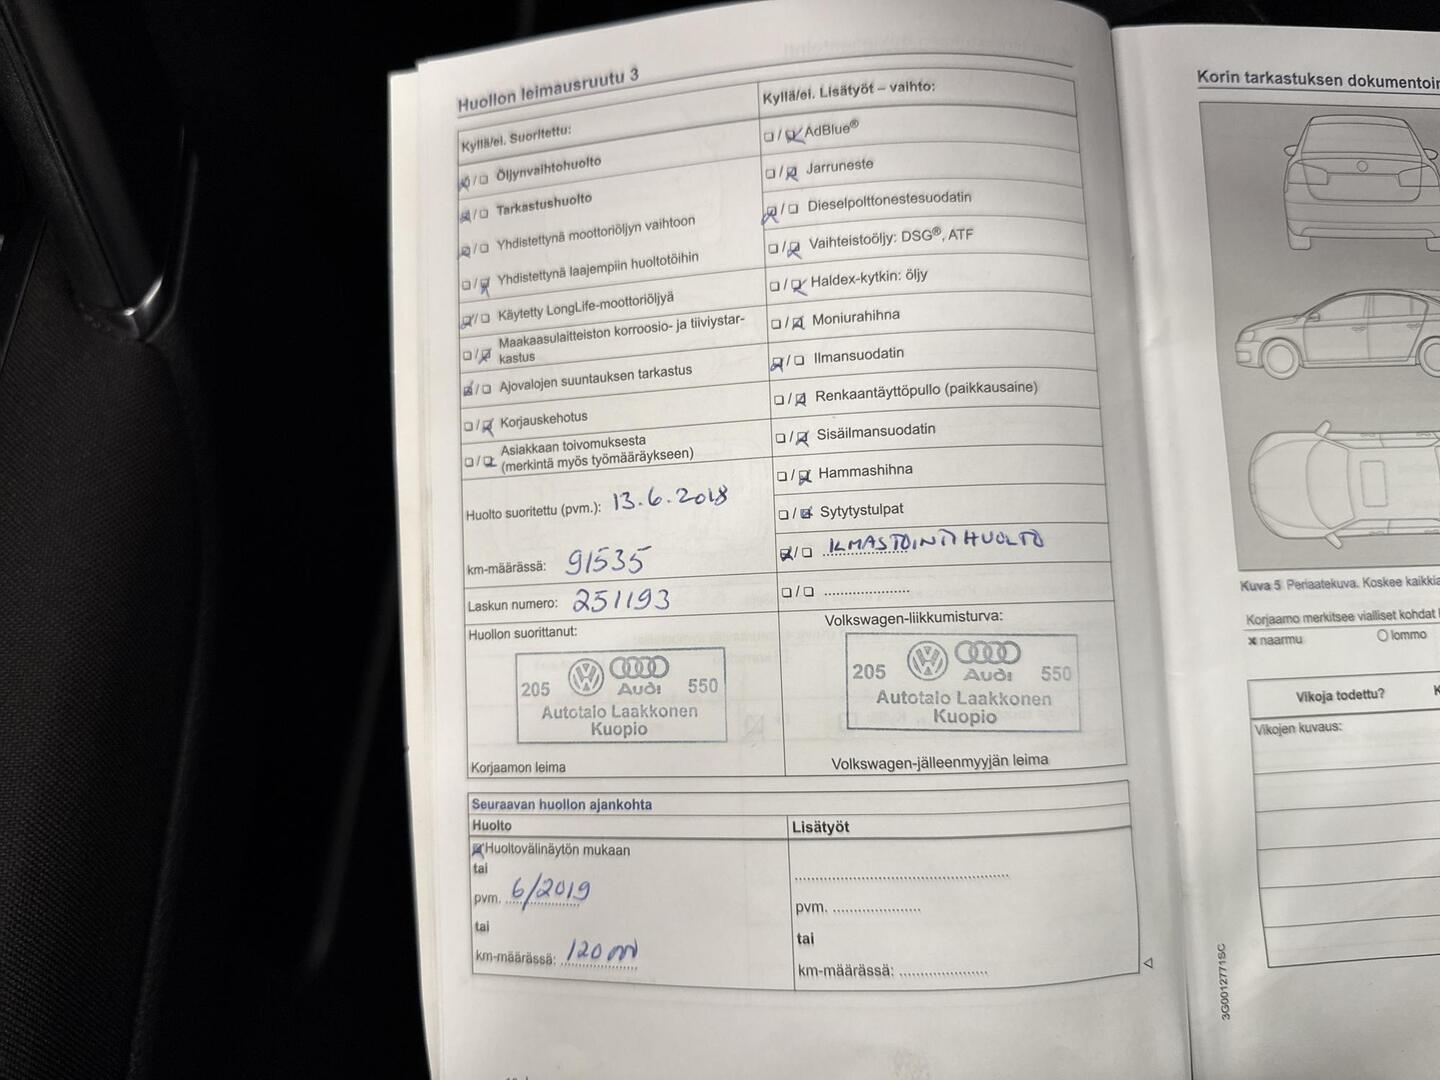 Huollon leimausruutu 3
Kyllä/ei. Suoritettu:
☒/☐ Öljynvaihtohuolto
☒/☐ Tarkastushuolto
☒/☐ Yhdistettynä moottoriöljyn vaihtoon
☐/☒ Yhdistettynä laajempiin huoltotöihin
☒/☐ Käytetty LongLife-moottoriöljyä
☐/☒ Maakaasulaitteiston korroosio- ja tiiviystar-
kastus
☒/☐ Ajovalojen suuntauksen tarkastus
☐/☒ Korjauskehotus
☐/☒ Asiakkaan toivomuksesta
(merkintä myös työmääräykseen)
Huolto suoritettu (pvm.): 13.6.2018
km-määrässä: 91535
Laskun numero: 251193
Huollon suorittanut:
205 Audi 550
Autotalo Laakkonen
Kuopio
Korjaamon leima
Kyllä/ei. Lisätyöt – vaihto:
☐/☒ AdBlue®
☐/☒ Jarruneste
☒/☐ Dieselpolttonestesuodatin
☐/☒ Vaihteistoöljy: DSG®, ATF
☐/☒ Haldex-kytkin: öljy
☐/☒ Moniurahihna
☒/☐ Ilmansuodatin
☐/☒ Renkaantäyttöpullo (paikkausaine)
☐/☒ Sisäilmansuodatin
☐/☒ Hammashihna
☐/☒ Sytytystulpat
☒/☐ ILMASTOINTIHUOLTO
☐/☐ .....................
Volkswagen-liikkumisturva:
205 Audi 550
Autotalo Laakkonen
Kuopio
Volkswagen-jälleenmyyjän leima
Seuraavan huollon ajankohta
Huolto
☒ Huoltovälinäytön mukaan
tai
pvm. 6/2019
tai
km-määrässä: 120 000
Lisätyöt
pvm. .....................
tai
km-määrässä: .....................
Korin tarkastuksen dokumentoin
Kuva 5 Periaatekuva. Koskee kaikkia
Korjaamo merkitsee vialliset kohdat
x naarmu O lommo
Vikoja todettu? K
Vikojen kuvaus:
3G0012771SC